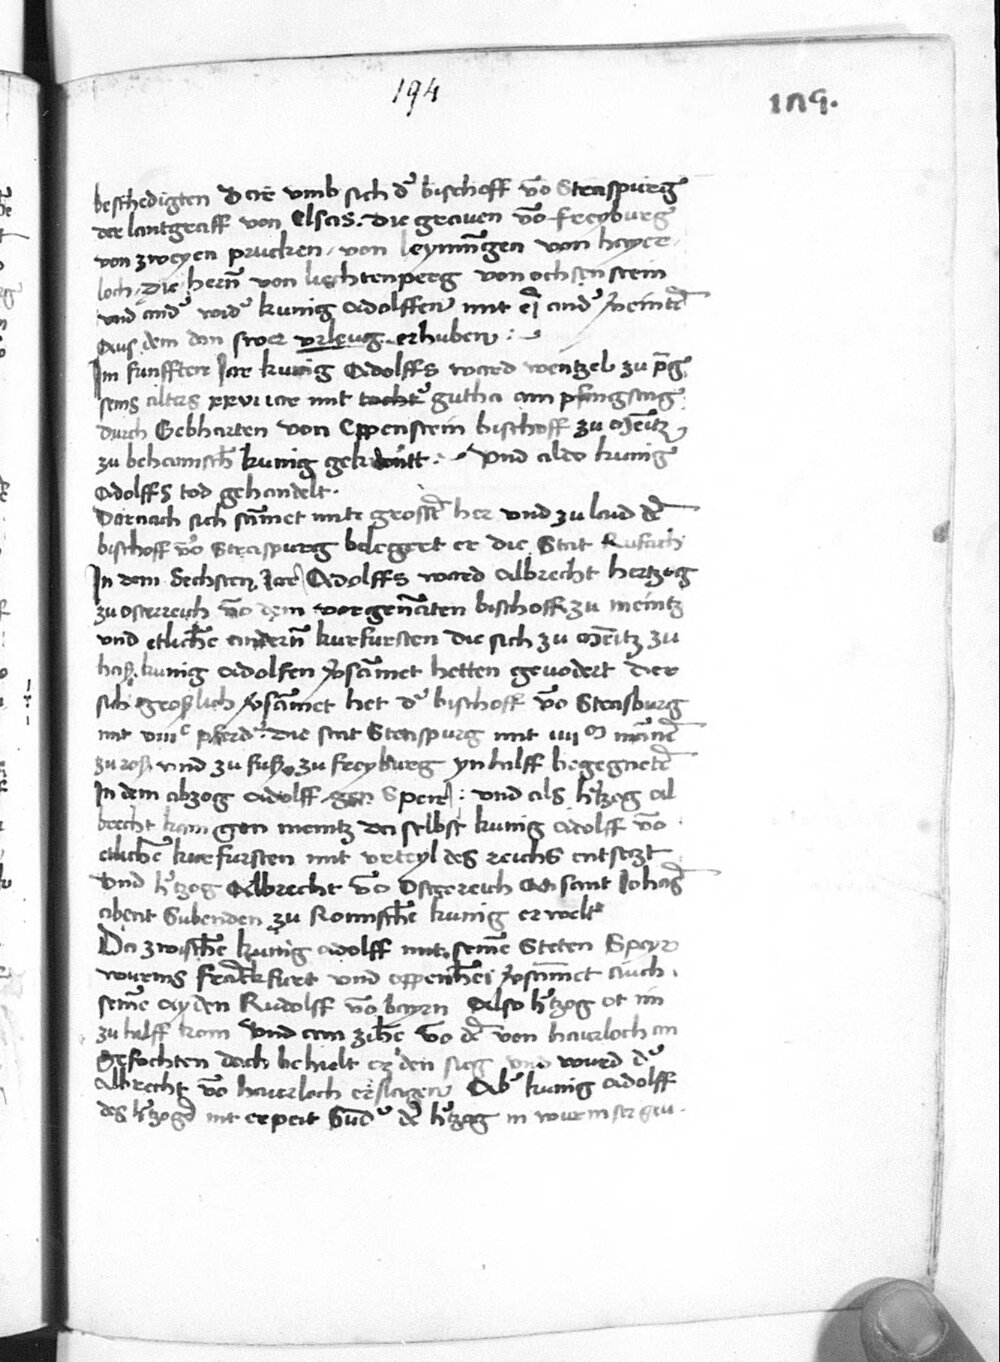 194
189.
beschedigten Dar vmb sich d' bischoff võ Straspurg
der lantgraff von Elsas. die grauen võ freyburg
von zweyen prucken, von leynin̄gen von hayer-
loch, die hern̄ von liechtenperg von ochsenstein
vnd and' wid' kunig Adolffen mit
Aus dem dan swer vrleug erhuben
Im funfften Jar kunig Adolffs ward wentzel zu p̄g
seins alters xxvi iar mit tocht' gutha am pfingstag
durch Gebharten von Eppenstein bischoff zu Mēitz
zu behamisch kunig gekrōntt. Vnd also kunig
Adolffs tod gehandelt.
Darnach sich sāmet mit grossē her vnd zu laid dē
bischoff võ Straspurg belegert er die Stat Rufach
In dem Sechsten Jar Adolffs ward Albrecht hertzog
zu osterreich võ dem vorgenāten bischoff zu meintz
vnd etlichē andern̄ kurfursten die sich zu Mēitz zu
haß kunig Adolfen v̄sāmet hetten geuodert Der
sich großlich v̄sāmet het d' bischoff võ Strasburg
mit viiiᶜ pferd' die stat Straspurg mit iiii M mān̄e
zu roß vnd zu fuß zu freyburg yn hilff begegnetē
In dem abzog Adolff gen Speir: vnd als h'tzog Al
brecht kam gen meintz da selbst kunig Adolff võ
etlichē kurfursten mit vrteyl des reichs entsetzt
Vnd h'tzog Albrecht võ Ostereich An sant Johās
abent Subenden zu Romischē kunig erwelt
Da zwischē kunig Adolff mit seinē Steten Speyr
wurms franckfurt vnd oppenhēi v̄sāmet auch
seinē ayden Rudolff võ bayrn Also h'tzog ot im
zu hilff kam Vnd am zihē võ dē von haierloch an
gefochten doch behielt er den sieg vnd wurd d'
Albrecht võ haierloch erslagen Ab' kunig Adolff
des h'tzogē nit erpeit Sūd' dē h'tzog in wurmser geu